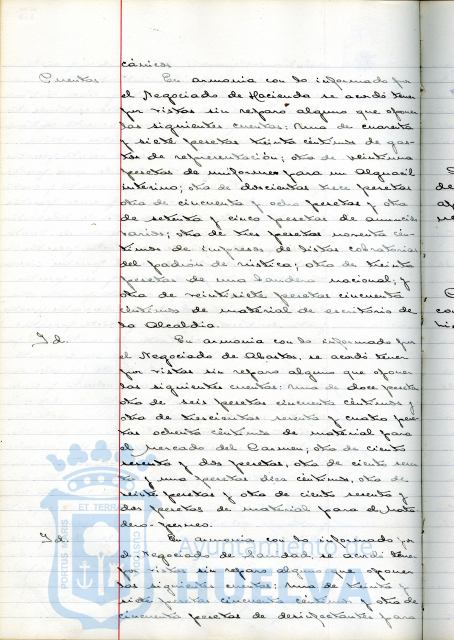 cánicos
Cuentas En armonía con lo informado por
el Negociado de Hacienda se acordó tener
por vistas sin reparo alguno que oponer
las siguientes cuentas: Una de cuarenta
y siete pesetas treinta céntimos de gas-
tos de representación; otra de veintiuna
pesetas de uniformes para un Alguacil
interino; otra de doscientas trece pesetas
otra de cincuenta y ocho pesetas y otra
de setenta y cinco pesetas de anuncios
varios; otra de tres pesetas noventa cén-
timos de impresos de listas cobratorias
del padrón de rústica; otra de treinta
pesetas de una bandera nacional; y
otra de veintisiete pesetas cincuenta
céntimos de material de escritorio de
la Alcaldía.
Id. En armonía con lo informado por
el Negociado de Abastos, se acordó tener
por vistas sin reparo alguno que oponer
las siguientes cuentas: Una de doce pesetas
otra de seis pesetas cincuenta céntimos y
otra de trescientas sesenta y cuatro pese-
tas ochenta céntimos de material para
el Mercado del Carmen; otra de ciento
sesenta y dos pesetas, otra de ciento sesen-
ta y una pesetas diez céntimos, otra de
siete pesetas y otra de ciento sesenta y
dos pesetas de material para el Mata-
dero público.
Id. En armonía con lo informado por
el Negociado de Sanidad se acordó tener
por vistas sin reparo alguno que oponer
las siguientes cuentas: Una de treinta y
siete pesetas cincuenta céntimos y otra de
cincuenta pesetas de desinfectantes para
PORTUS MARIS ET TERRAE CUSTODIA
Ayuntamiento de
HUELVA